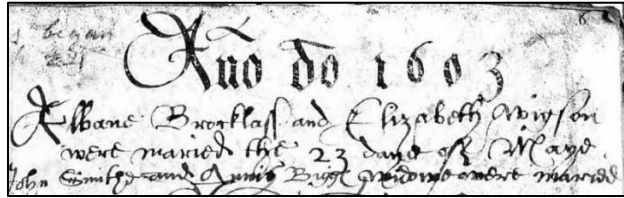 began
Año do 1603
Albane Brocklass and Elizabeth Wigson
were maried the 23 daye of Maye
John Smithe and Annis Bigg widowe were maried